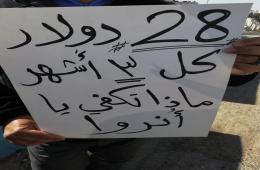 #28 دولار
كل 3# أشهر
ماذا تكفي يا
أنروا